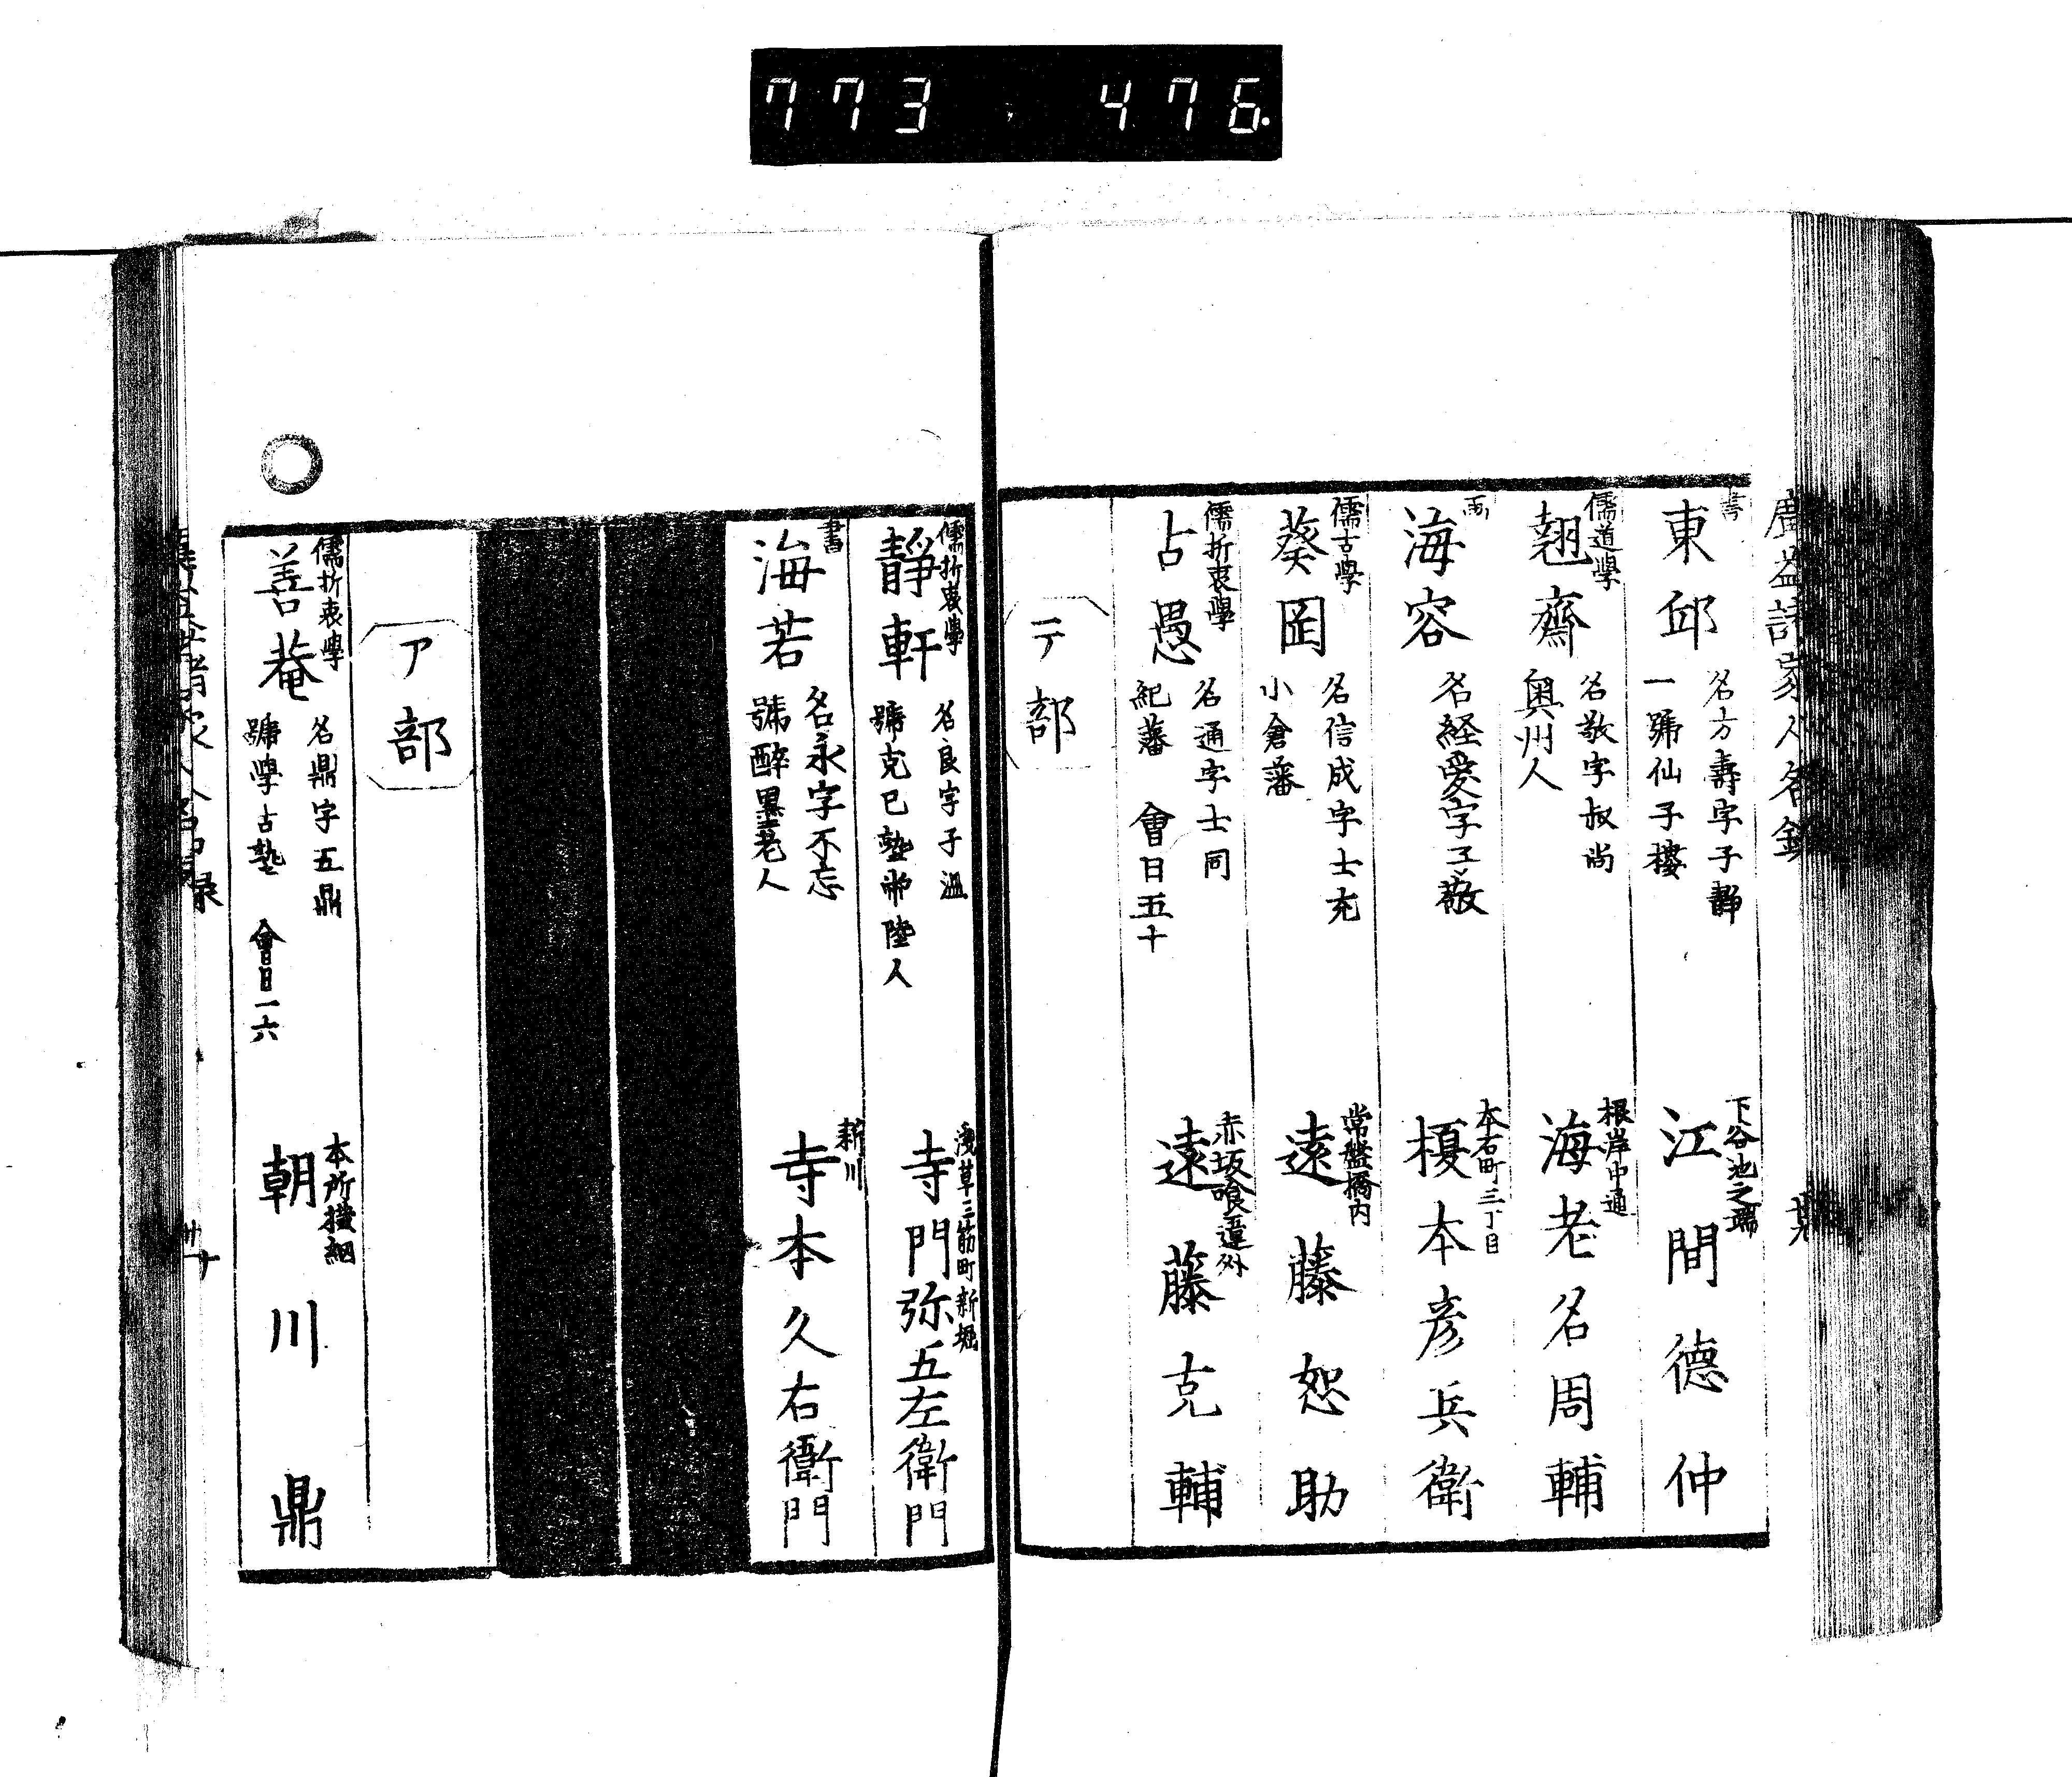 773 476
廣益諸家人名録
書
東邱
名方壽字子靜
一號仙子樓
下谷池之端
江間德仲
儒道學
翹齋
名敬字叔尚
奥州人
根岸中通
海老名周輔
画
海容
名経愛字子敬
本石町三丁目
榎本彦兵衛
儒古學
葵岡
名信成字士充
小倉藩
常盤橋内
遠藤恕助
儒折衷學
占愚
名通字士同
紀藩 會日五十
赤坂喰違外
遠藤克輔
テ部
儒折衷學
靜軒
名良字子温
號克己塾常陸人
浅草三筋町新堀
寺門弥五左衛門
書
海若
名永字不忘
號醉墨老人
新川
寺本久右衛門
ア部
儒折衷學
善菴
名鼎字五鼎
號學古塾 會日一六
本所横綱
朝川鼎